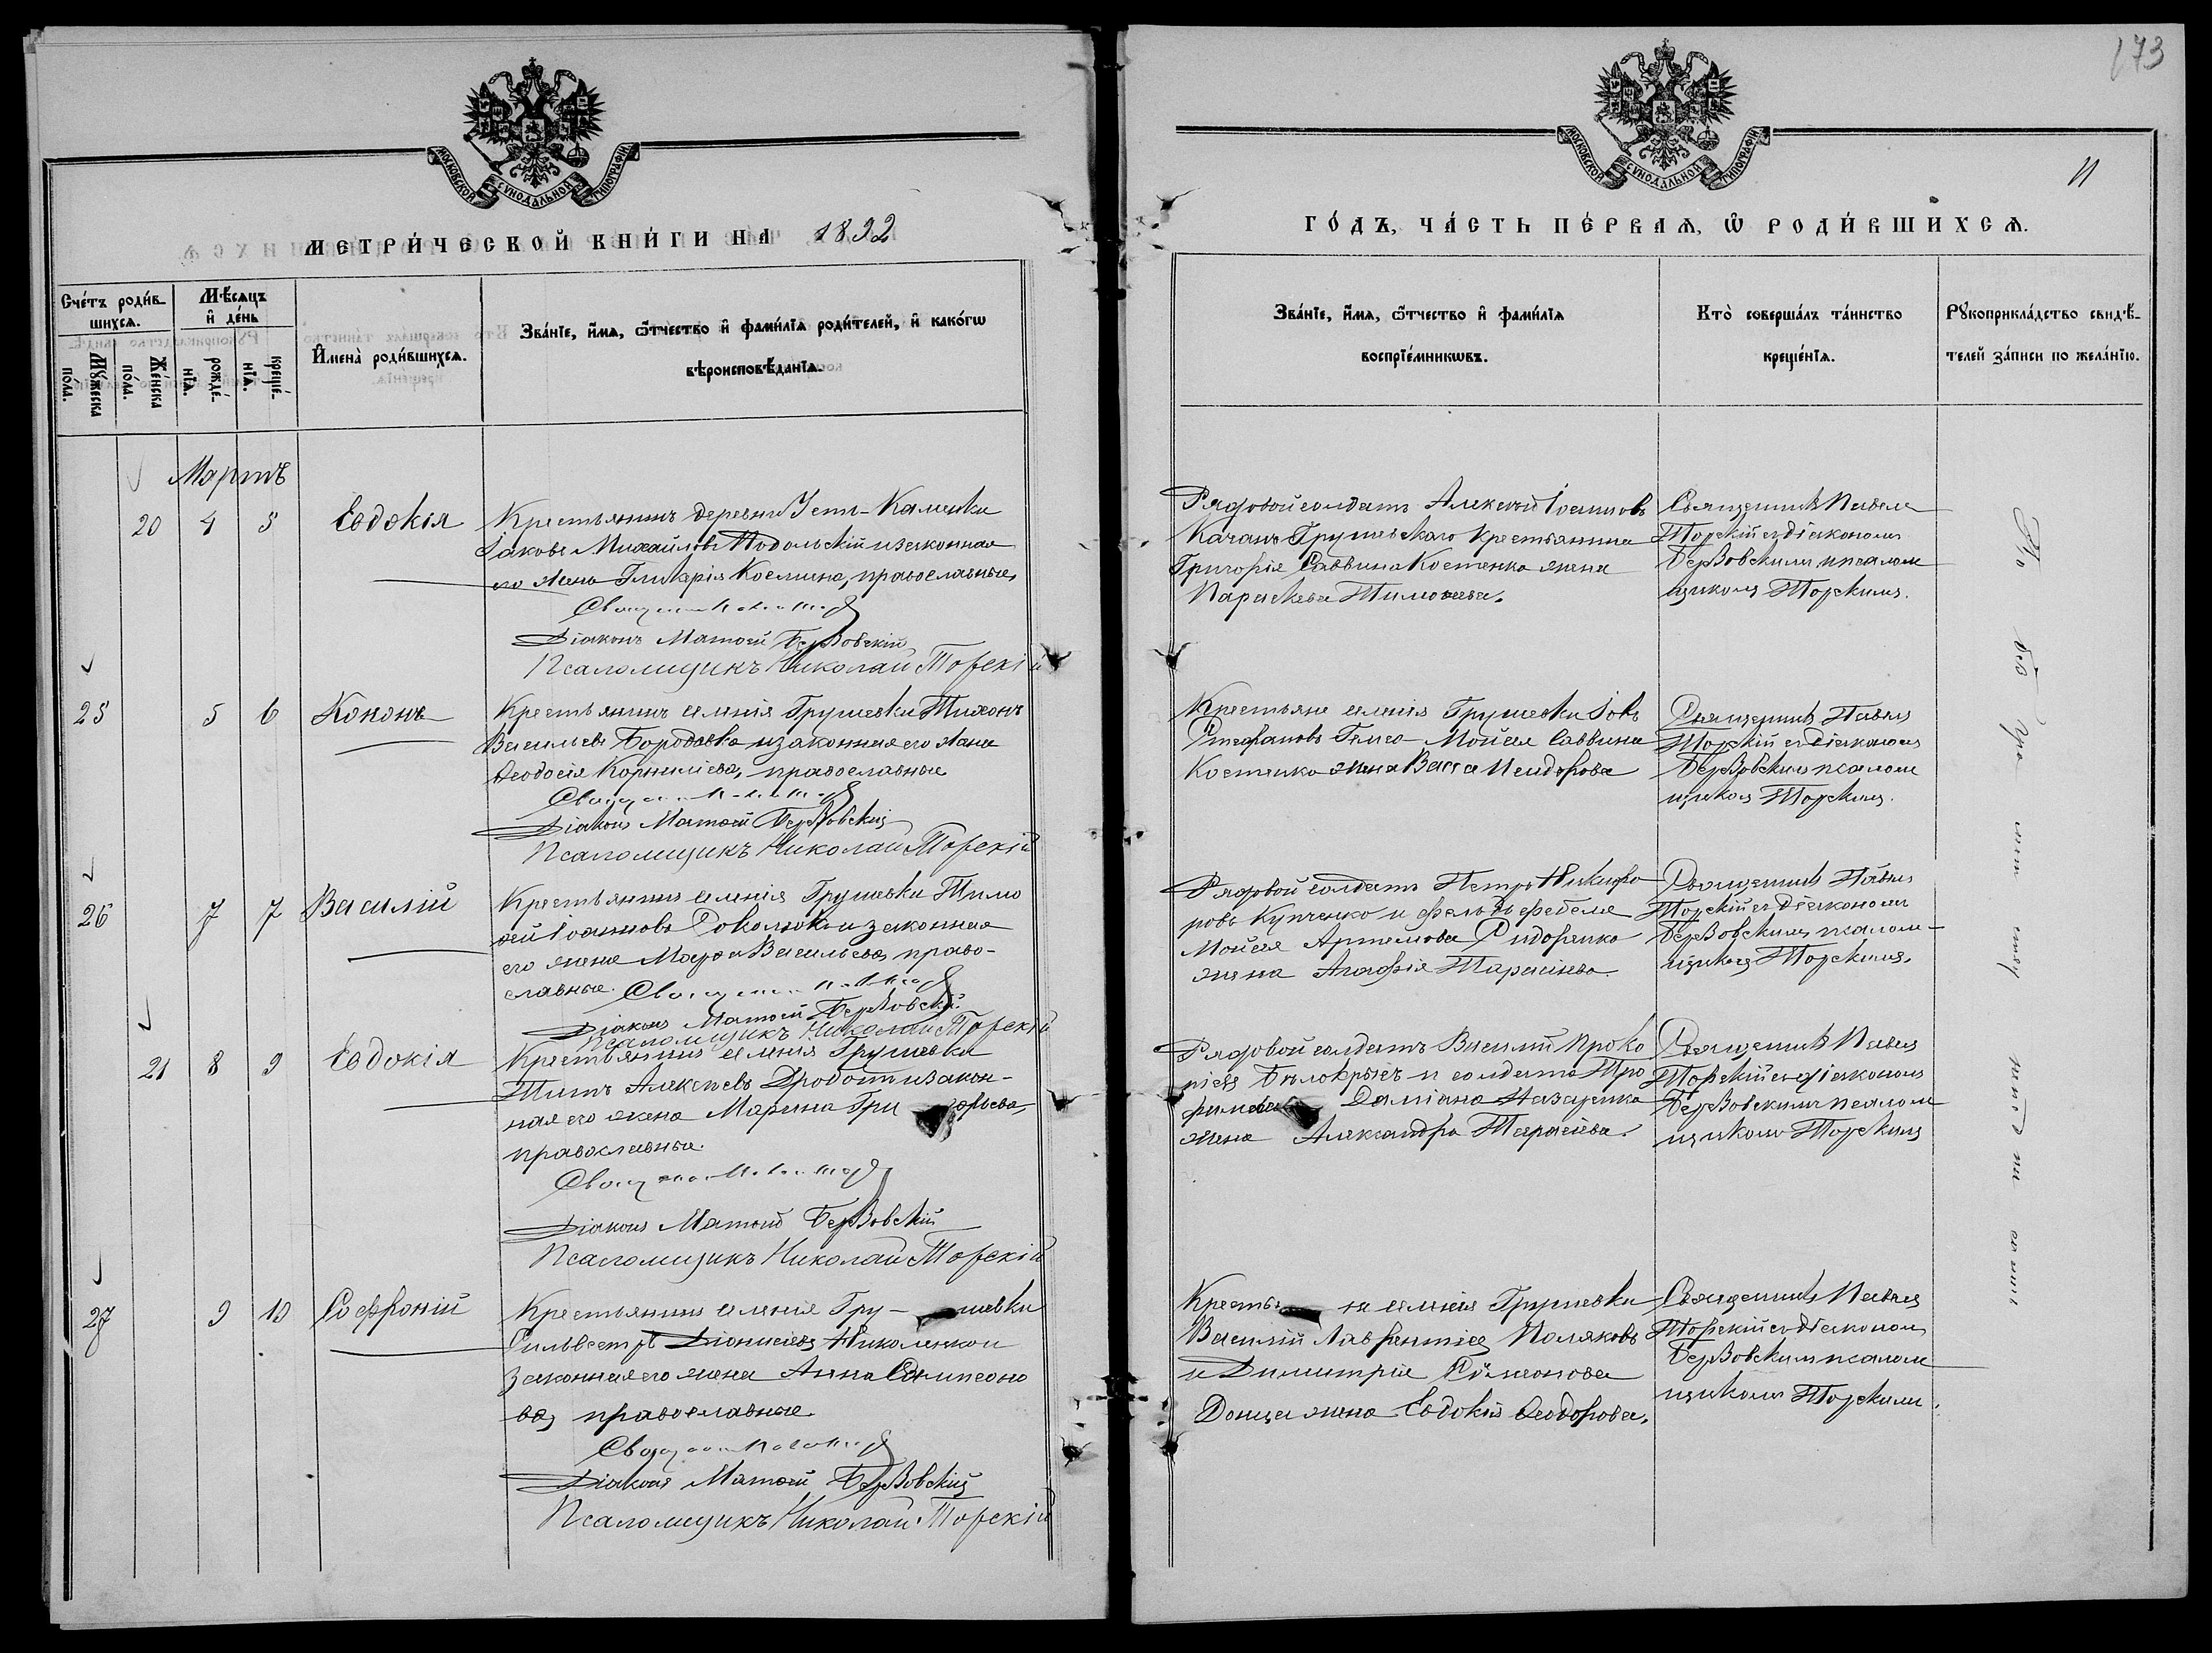 МОСКОВСКОЙ СѴНОДАЛЬНОЙ ТИПОГРАФІИ
МЕТРИ́ЧЕСКОЙ КНИ́ГИ НА 1892
Сче́тъ роди́в-
шихсѧ.
Мѣ́сѧцъ
и҆ де́нь
Мꙋ́жеска
по́ла.
Же́нска
по́ла.
рожде́-
нїѧ.
креще́-
нїѧ.
И҆мена̀ роди́вшихсѧ.
Зва́нїе, и҆́мѧ, ѻ҆́тчество и҆ фами́лїѧ роди́телей, и҆ како́гѡ
вѣроисповѣ́данїѧ.
Мартъ
20 4 5 Евдокія
Крестьянинъ деревни Усть-Каменки
Іаковъ Михайловъ Подольскій и законная
его жена Гликерія Космина, православные,
Діаконъ Матѳей Бервовскій
Псаломщикъ Николай Торскій
25 5 6 Кононъ
Крестьянинъ селенія Грушевки Тихонъ
Васильевъ Бородавка и законная его жена
Ѳеодосія Корнилієва, православные
Діаконъ Матѳей Бервовскій
Псаломщикъ Николай Торскій
26 7 7 Василій
Крестьянинъ селенія Грушевки Тимо
ѳей Іоанновъ Соколюк и законная
его жена Марѳа Васильева, право-
славные.
Діаконъ Матѳей Бервовскій
Псаломщикъ Николай Торскій
21 8 9 Евдокія
Крестьянинъ селенія Грушевки
Титъ Алексѣевъ Дробот и закон-
ная его жена Марина Григорьева,
православные.
Діаконъ Матѳей Бервовскій
Псаломщикъ Николай Торскій
27 9 10 Софроній
Крестьянинъ селенія Гру-шевки
Сильвестръ Діонисіевъ Николенко и
законная его жена Анна Сампсоно
ва, православные.
Діаконъ Матѳей Бервовскій
Псаломщикъ Николай Торскій
173
11
МОСКОВСКОЙ СѴНОДАЛЬНОЙ ТИПОГРАФІИ
ГО́ДЪ, ЧА́СТЬ ПЕ́РВАѦ, Ѽ РОДИ́ВШИХСѦ.
Зва́нїе, и҆́мѧ, ѻ҆́тчество и҆ фами́лїѧ
воспрїе́мникѡвъ.
Кто̀ соверша́лъ та́инство
креще́нїѧ.
Рꙋкоприкла́дство свидѣ́-
телей за́писи по жела́нїю.
Рядовой солдатъ Алексѣй Іоанновъ
Качанъ Грушевского крестьянина
Григорія Саввина Костенка жена
Параскева Тимоѳеева.
Священникъ Павелъ
Торскій съ діакономъ
Бервовскимъ и псалом
щикомъ Торскимъ.
Крестьяне селенія Грушевки Іовъ
Стефановъ Моѵсея Саввина
Костенко жена Васса Исидорова
Священникъ Павелъ
Торскій съ діакономъ
Бервовскимъ псалом
щикомъ Торскимъ.
Рядовой солдатъ Петръ Никифо
ровъ Купченко и фельдфебеля
Моѵсея Артемова Сидоренко
жена Агафія Тарасіева
Священникъ Павелъ
Торскій съ діакономъ
Бервовскимъ псалом-
щикомъ Торскимъ.
Рядовой солдатъ Василій Проко
піевъ Бѣлокрысъ и солдата Тро
фимова Даміана Назаренко
жена Александра Тарасіева.
Священникъ Павелъ
Торскій съ діакономъ
Бервовскимъ псалом
щикомъ Торскимъ
Крестьяне селенія Грушевки
Василій Лаврентіевъ Поляковъ
и Димитрія Сѵмеонова
Донца жена Евдокія Ѳеодорова.
Священникъ Павелъ
Торскій съ діакономъ
Бервовскимъ псалом
щикомъ Торскимъ.